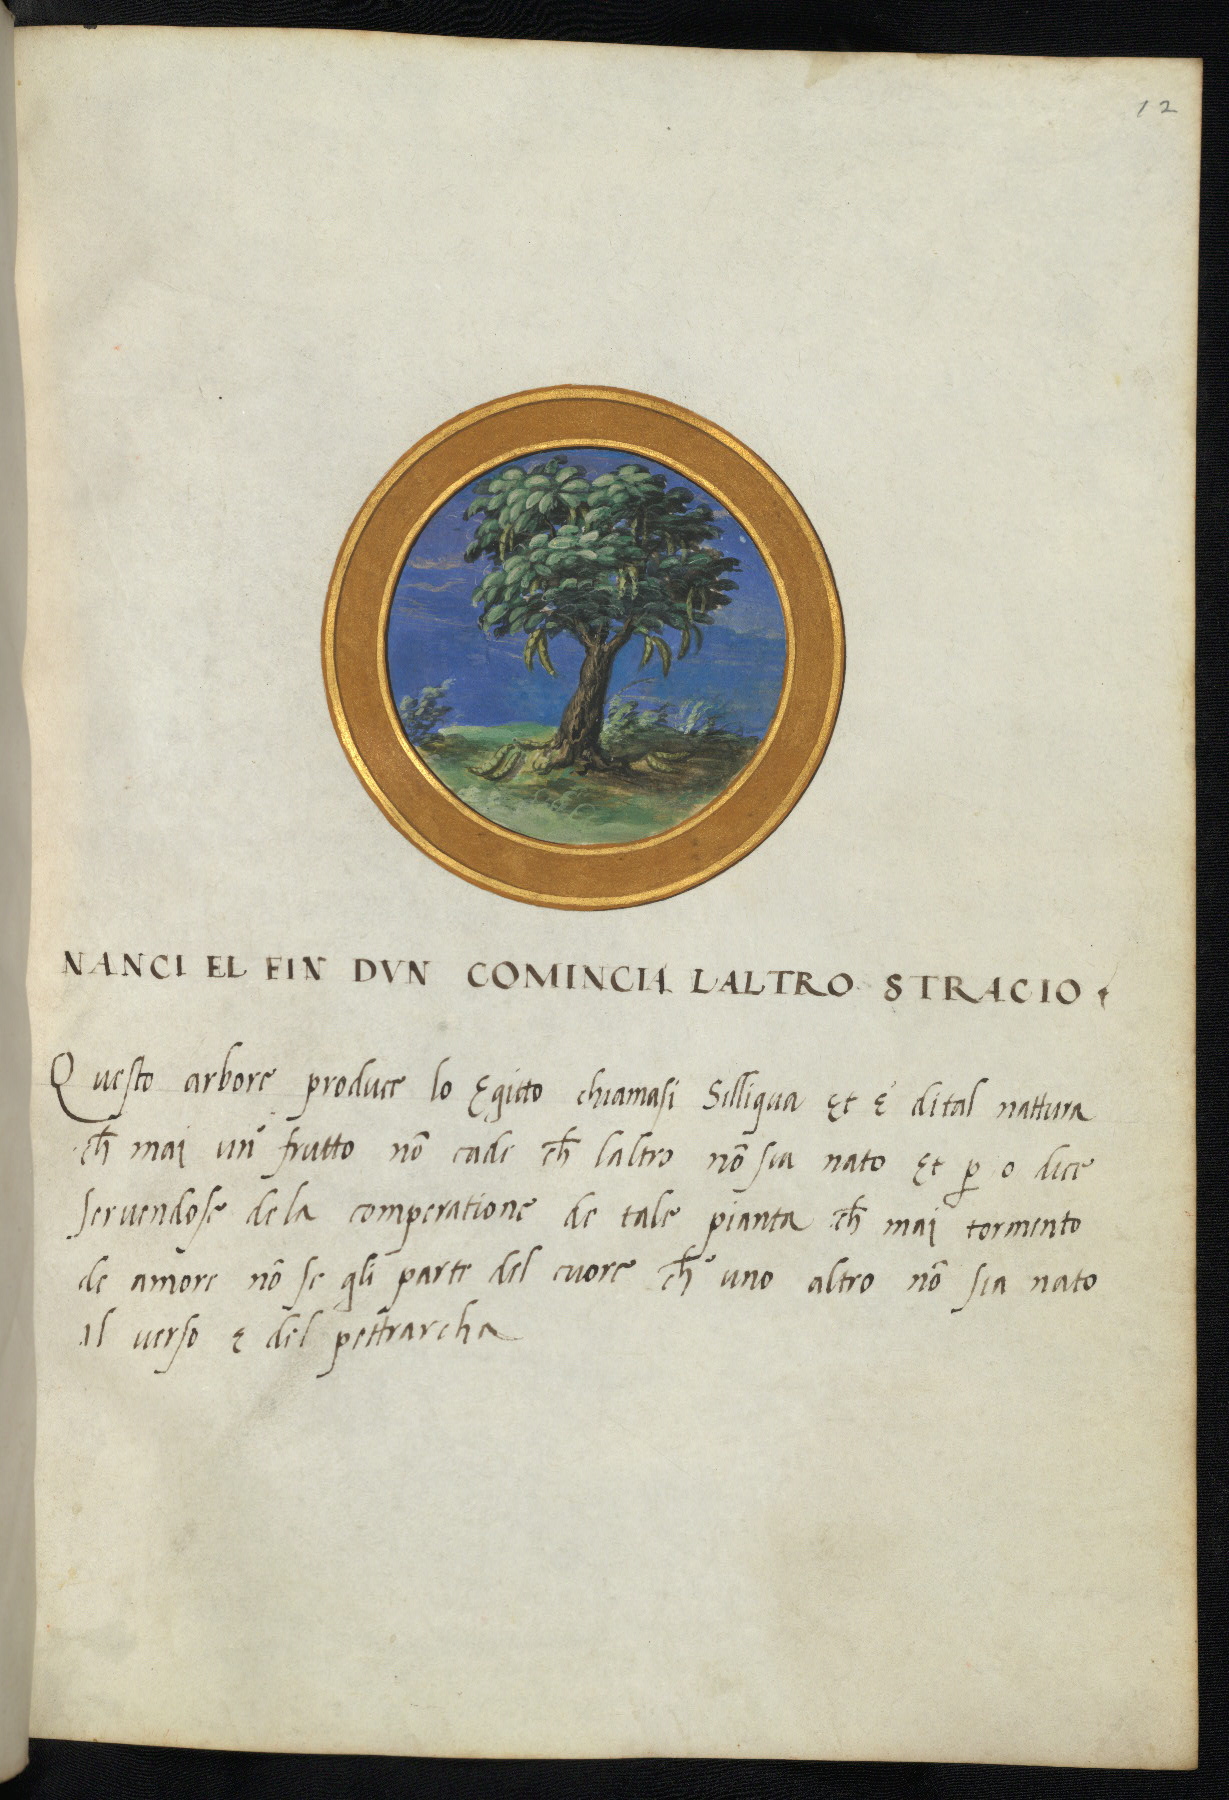 12
NANCI EL FIN DVN COMINCIA L'ALTRO STRACIO
Questo arbore produce lo Egitto chiamasi Silliqua et é dital nattura
ch̄ mai un frutto nō cade ch̄ laltro nō sia nato et p̱ o dice
servendose de la comperatione de tale pianta ch̄ mai tormento
de amore nō se gli parte del cuore ch̄ uno altro nō sia nato
il verso e del pettrarcha